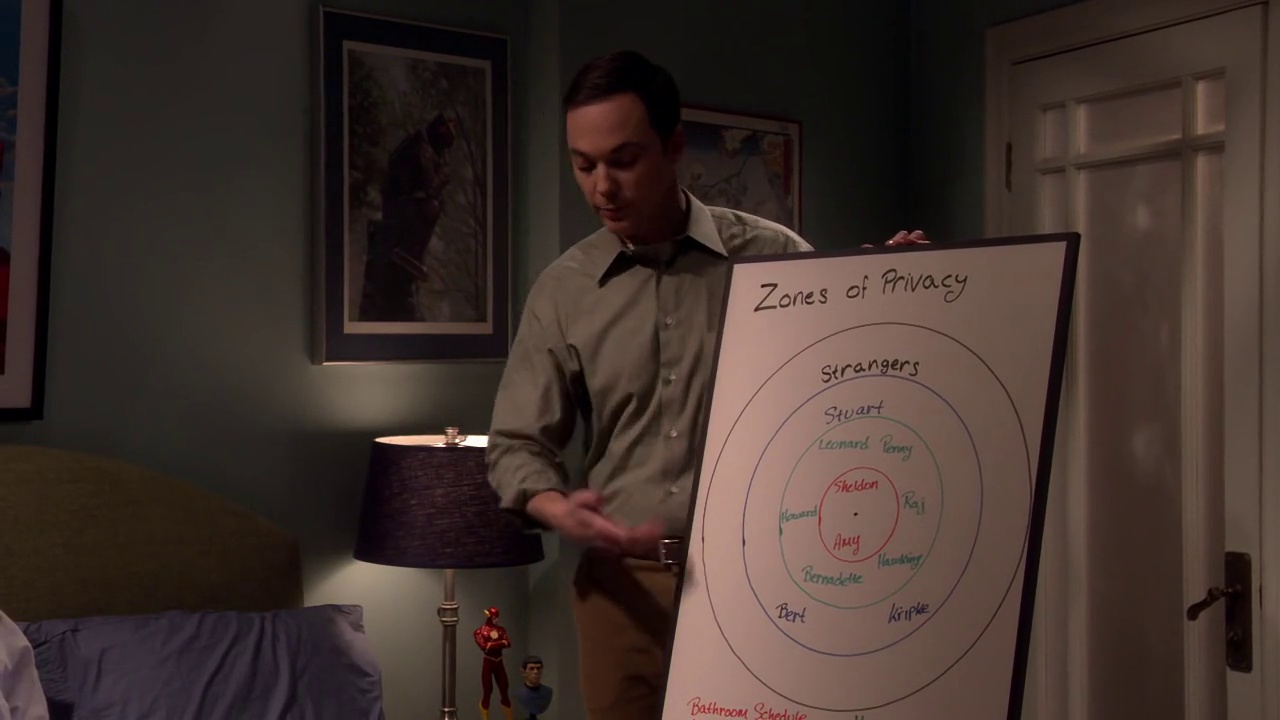 Zones of Privacy
Strangers
Stuart
Leonard Penny
Sheldon
Howard
Raj
Amy
Hawking
Bernadette
Bert
Kripke
Bathroom Schedule